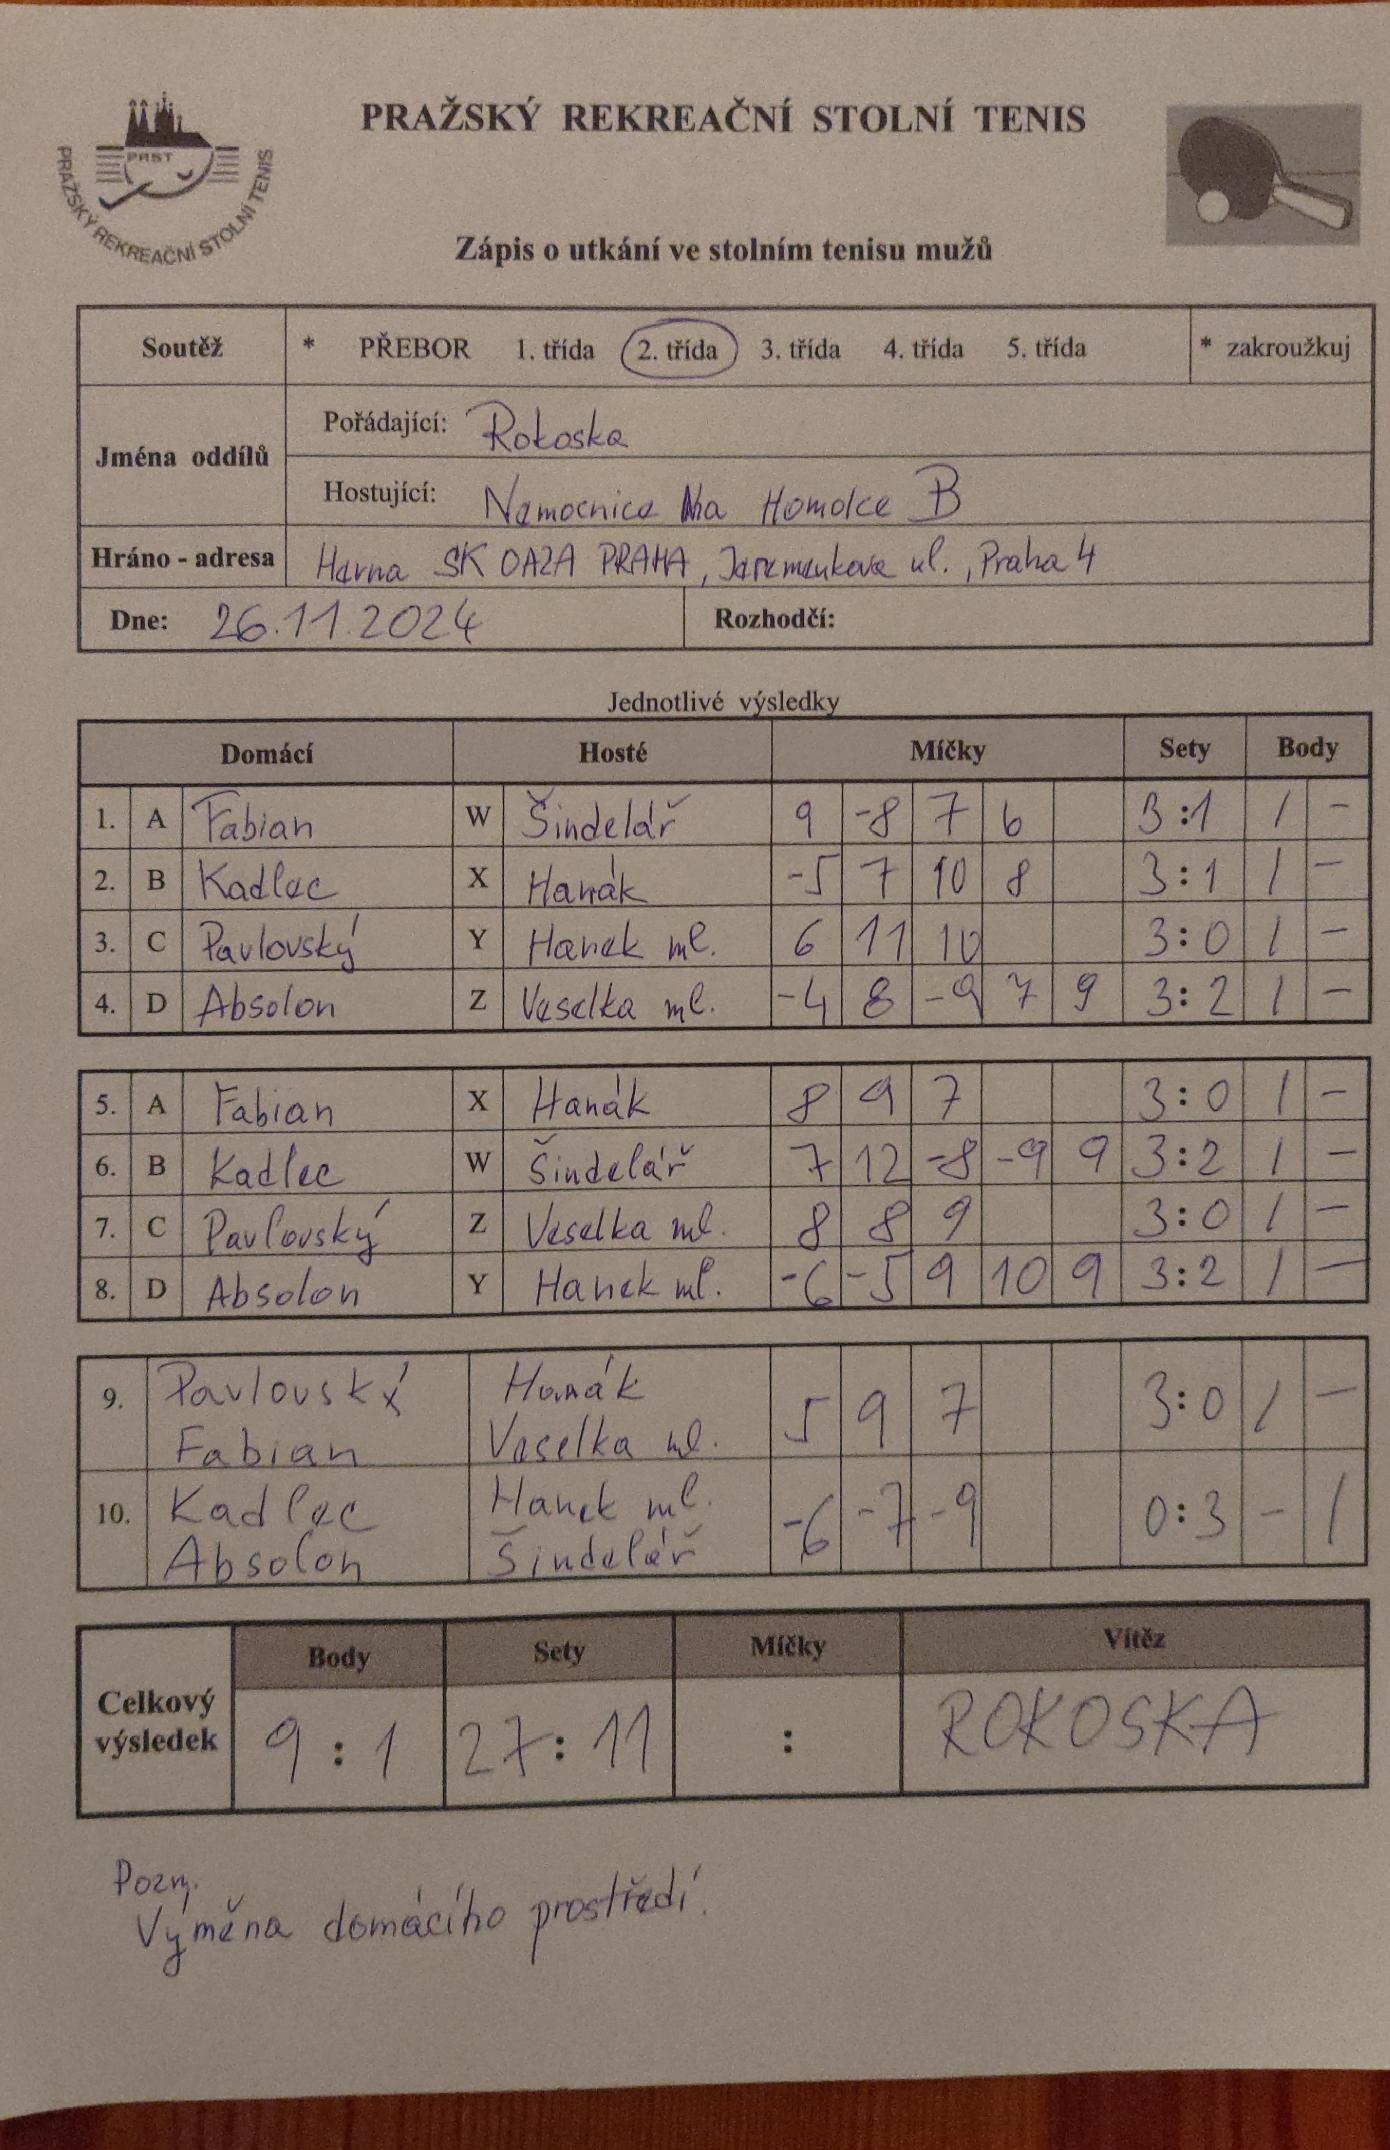 PRAŽSKÝ REKREAČNÍ STOLNÍ TENIS
PRST
PRAŽSKÝ REKREAČNÍ STOLNÍ TENIS
Zápis o utkání ve stolním tenisu mužů
Soutěž * PŘEBOR 1. třída 2. třída 3. třída 4. třída 5. třída * zakroužkuj
Jména oddílů
Pořádající: Rokoska
Hostující: Nemocnice Na Homolce B
Hráno - adresa Herna SK OAZA PRAHA, Jeremenkova ul., Praha 4
Dne: 26.11.2024 Rozhodčí:
Jednotlivé výsledky
Domácí Hosté Míčky Sety Body
1. A Fabian W Šindelář 9 -8 7 6 3:1 1 -
2. B Kadlec X Hanák -5 7 10 8 3:1 1 -
3. C Pavlovský Y Hanek ml. 6 11 10 3:0 1 -
4. D Absolon Z Veselka ml. -4 8 -9 7 9 3:2 1 -
5. A Fabian X Hanák 8 9 7 3:0 1 -
6. B Kadlec W Šindelář 7 12 -8 -9 9 3:2 1 -
7. C Pavlovský Z Veselka ml. 8 8 9 3:0 1 -
8. D Absolon Y Hanek ml. -6 -5 9 10 9 3:2 1 -
Pavlovský Hanák
9. 5 9 7 3:0 1 -
Fabian Veselka ml.
Kadlec Hanek ml.
10. -6 -7 -9 0:3 - 1
Absolon Šindelář
Celkový výsledek
Body Sety Míčky Vítěz
9 : 1 27 : 11 : ROKOSKA
Pozn.
Výměna domácího prostředí.